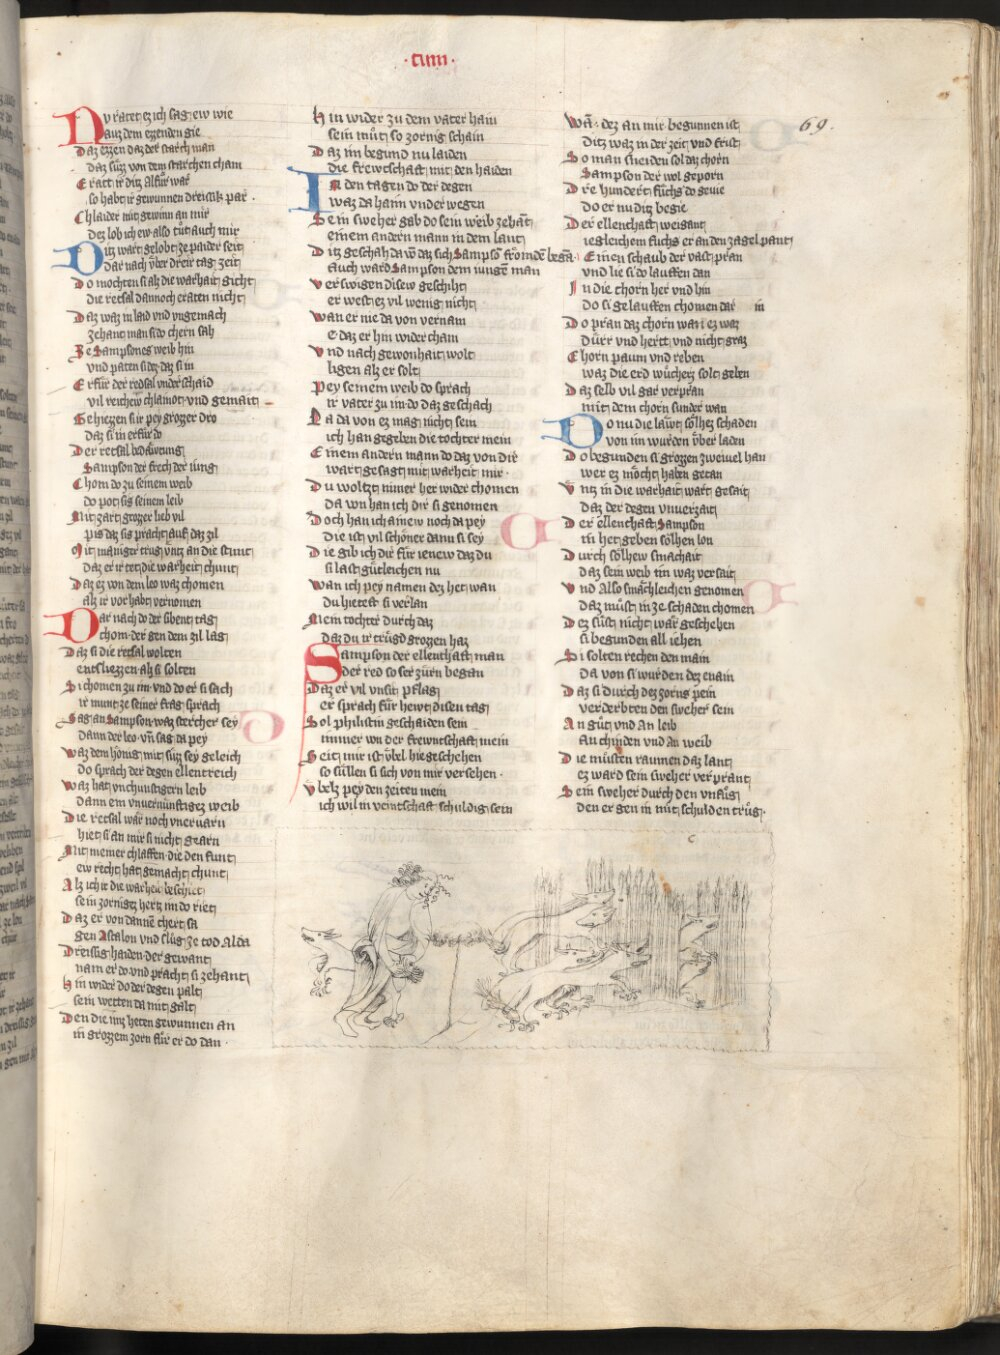 ·cviiii·
69.
Nv ratet ez ich sag ew wie
auz dem ezzenden gie
Daz ezzen daz der starch man
daz suzz von dem starchen cham
Eratt ir ditz alfür war
so habt ir gewunnen dreisik par
Chlaider mit gewinn an mir
dez lob ich ew also tüt auch mir
Ditz wart gelobt ze paider seit
dar nach vber dreir tag zeit
Do mochten si alz die warhait gicht
die retsal dannoch eraten nicht
Daz waz in laid vnd vngemach
zehant man si do chern sah
Ze Sampsones weib hin
vnd paten si dez daz si in
Erfür der redsal vnderschaid
vil reichew chlainot vnd gemait
Se hiezzen si ir pey grozzer dro
daz si in erfür do
Der retsal bedäwtung
Sampson der frech der iung
Chom do zu seinem weib
do pot si seinem leib
Mit zart grozzer lieb vil
piz daz si pracht auf daz zil
Mit maniger trüg vntz an die stunt
daz er ir tet die warheit chunt
Daz ez von dem leo waz chomen
alz ir vor habt vernomen
Dar nach do der sibent tag
chom der gen dem zil lag
Daz si die retsal wolten
entsliezzen alz si solten
Si chomen zu im vnd do er si sach
ir munt ze seiner frag sprach
Sag an Sampson waz stercher sey
dann der leo vn sag da pey
Waz dem honig mit süzz sey geleich
do sprach der degen ellentreich
Waz hat vnchunstigern leib
dann ein vnuernünftigez weib
Die retsal wär noch vneruarn
hiet si an mir si nicht gearn
Mit meiner chlaffen die den funt
ew recht hat gemacht chunt
Alz ich ir die warheit beschiet
sein zornigz hertz im do riet
Daz er von dannē chert sa
gen Astalon vnd slüg ze tod alda
Dreissig haiden der gewant
nam er do vnd pracht si zehant
Hin wider do der degen palt
sein wetten da mit galt
Den die imz heten gewunnen an
in grozzem zorn für er do dan
Hin wider zu dem vater hain
sein müt so zornig schain
Daz im begund nu laiden
die frewtschaft mit den haiden
In den tagen do der degen
waz da haim vnder wegen
Sein sweher gab do sein weib zehāt
einem andern mann in dem lant
Ditz geschah da vō daz sich Sampsō frömdē begā
auch ward Sampson dem iungē man
Verswigen disew geschiht
er west ez vil wenig nicht
Wan er nie da von vernam
e daz er hin wider cham
Vnd nach gewonhait wolt
ligen alz er solt
Pey seinem weib do sprach
ir vater zu im do daz geschach
Na da von ez mag nicht sein
ich han gegeben die tochter mein
Einem andern mann do daz von dir
wart gesagt mit warheit mir
Du woltzt nimer her wider chomen
da von han ich dir si genomen
Doch han ich ainew noch da pey
die ist vil schöner dann si sey
Die gib ich dir für ienew daz du
si last gütleichen nu
Wan ich pey namen dez het wan
du hietest si verlan
Mein tochter durch daz
daz du ir trügd grozzen haz
Sampson der ellenthaft man
der red so ser zürn began
Daz er vil vnsit pflag
er sprach für hewt disen tag
Sol philistin geschaiden sein
nimer von der frewntschaft mein
Seit mir ist vbel hie geschehen
so süllen si sich von mir versehen
Vbelz pey den zeiten mein
ich wil in veintschaft schuldig sein
Wā dez an mir begunnen ist
Ditz waz in der zeit vnd frist
So man sneiden sol daz chorn
Sampson der wol geporn
Dre hundert füchs do gevie
do er nu ditz begie
Der ellenthaft weigant
iegleichem fuchs er an den zagel pant
Einen schaub der vast pran
vnd lie si do lauffen dan
In die chorn her vnd hin
do si gelauffen chomen dar in
Do pran daz chorn wan ez waz
dürr vnd hertt vnd nicht graz
Chorn paum vnd reben
waz die erd wücherz solt geben
Daz selb vil gar verpran
mit dem chorn sunder wan
Do nu die läwt sölhez schaden
von im wurden vber laden
Do begunden si grozzen zweiuel han
wer ez möcht haben getan
Vntz in die warhait wart gesait
daz der degen vnuerzait
Der ellenthaft Sampson
in het geben sölhen lon
Durch sölhew smachait
daz sein weib im waz versait
Vnd also smächleichen genomen
daz müst in ze schaden chomen
Dez süst nicht wär geschehen
si begunden all iehen
Si solten rechen den main
da von si wurden dez enain
Daz si durch dez zorns pein
verderbten den sweher sein
An güt vnd an leib
an chinden vnd an weib
Die müsten raumen daz lant
ez ward sein sweher verprant
Sein sweher durch den vnfüg
den er gen im mit schulden trüg